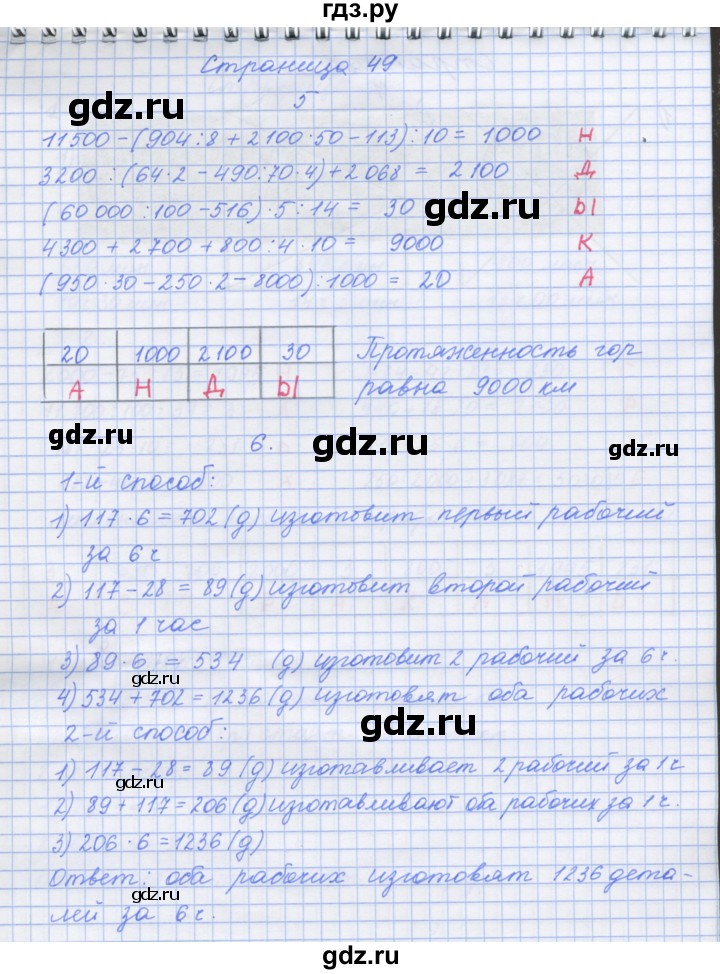 гдз.ру
Страница 49
gdz.ru
5
gdz.ru
11500-(904:8+2100·50-113):10= 1000 Н
3200:(64·2-490:70·4)+2068 = 2100 Д
gdz.ru
(60000:100-516)·5:14= 30 Ы
4300+2700+800:4·10= 9000 К
(950·30-250·2-8000):1000 = 20 А
20 1000 2100 30 Протяженность гор
А Н Д Ы равна 9000 км
gdz.ru 6. gdz.ru gdz.ru
1-й способ:
1) 117·6=702(д) изготовит первый рабочий
за 6 ч
2) 117-28=89(д) изготовит второй рабочий
за 1 час
3) 89·6 = 534 (д) изготовит 2 рабочий за 6 ч.
gdz.ru
4) 534+702=1236(д) изготовят оба рабочих
2-й способ: gdz.ru
1) 117-28=89 (д) изготавливает 2 рабочий за 1 ч
gdz.ru
2) 89+117=206(д) изготавливают оба рабочих за 1 ч.
3) 206·6=1236(д) gdz.ru
Ответ: оба рабочих изготовят 1236 дета-
лей за 6 ч. gdz.ru
gdz.ru